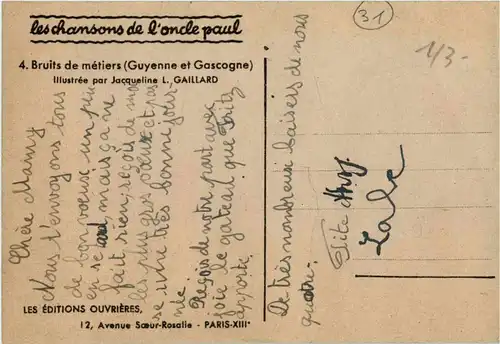 les chansons de l'oncle paul
4. Bruits de métiers (Guyenne et Gascogne)
Illustrée par Jacqueline L. GAILLARD
31
1/3-
Chère Mainy
Nous t'envoyons tous
de bon voeux un peu
en se mais ça ne
fait rien, reçois de nous
les plus gros voeux et pas
se une très bonne jour-
née
Reçois de notre part avec
joie le gateau que Fritz
apporte.
De très nombreux baisers de nous
quatre.
Tite
LES ÉDITIONS OUVRIÈRES,
12, Avenue Sœur-Rosalie - PARIS-XIIIe